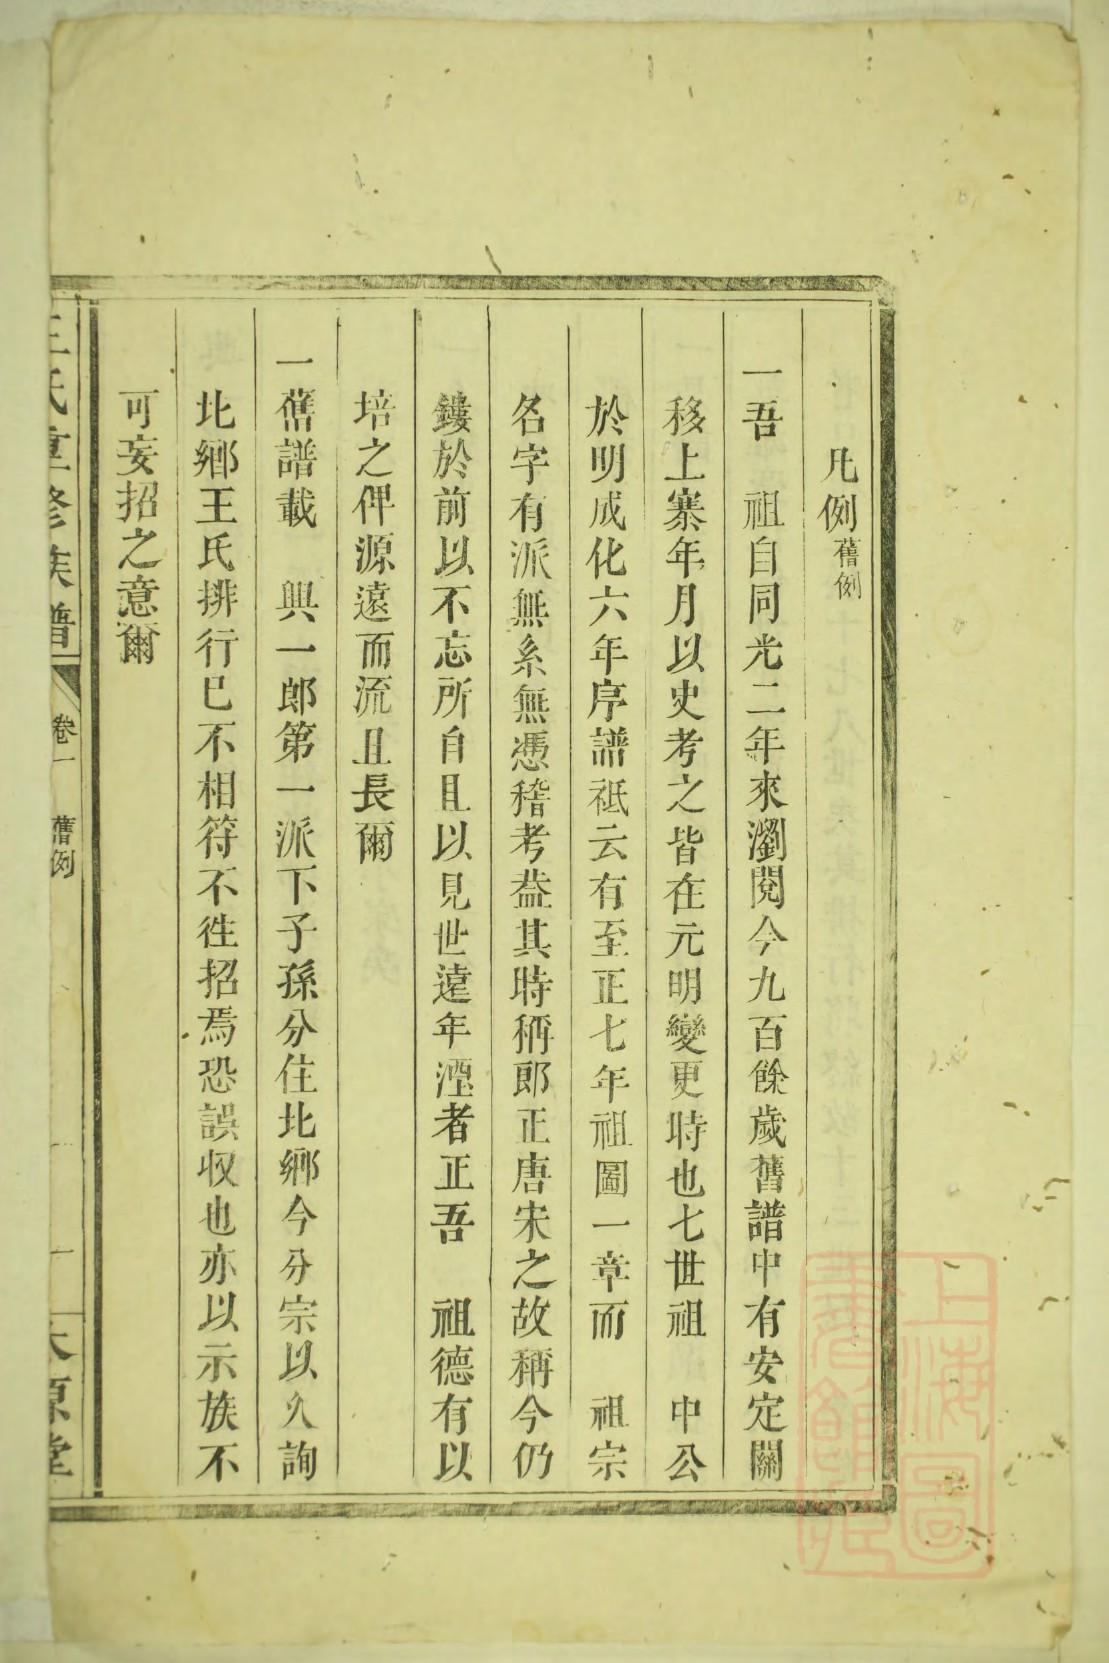 凡例舊例
一吾　祖自同光二年來瀏閱今九百餘歲舊譜中有安定關
移上寨年月以史考之皆在元明變更時也七世祖　中公
於明成化六年序譜祗云有至正七年祖圖一章而　祖宗
名字有派無系無憑稽考葢其時稱郎正唐宋之故稱今仍
鏤於前以不忘所自且以見世遠年湮者正吾　祖德有以
培之俾源遠而流且長爾
一舊譜載　興一郎第一派下子孫分住北鄉今分宗以久詢
北鄉王氏排行已不相符不徃招焉恐誤収也亦以示族不
可妄招之意爾
王氏重修族譜　卷一　舊例　一　太原堂
上海圖書館藏